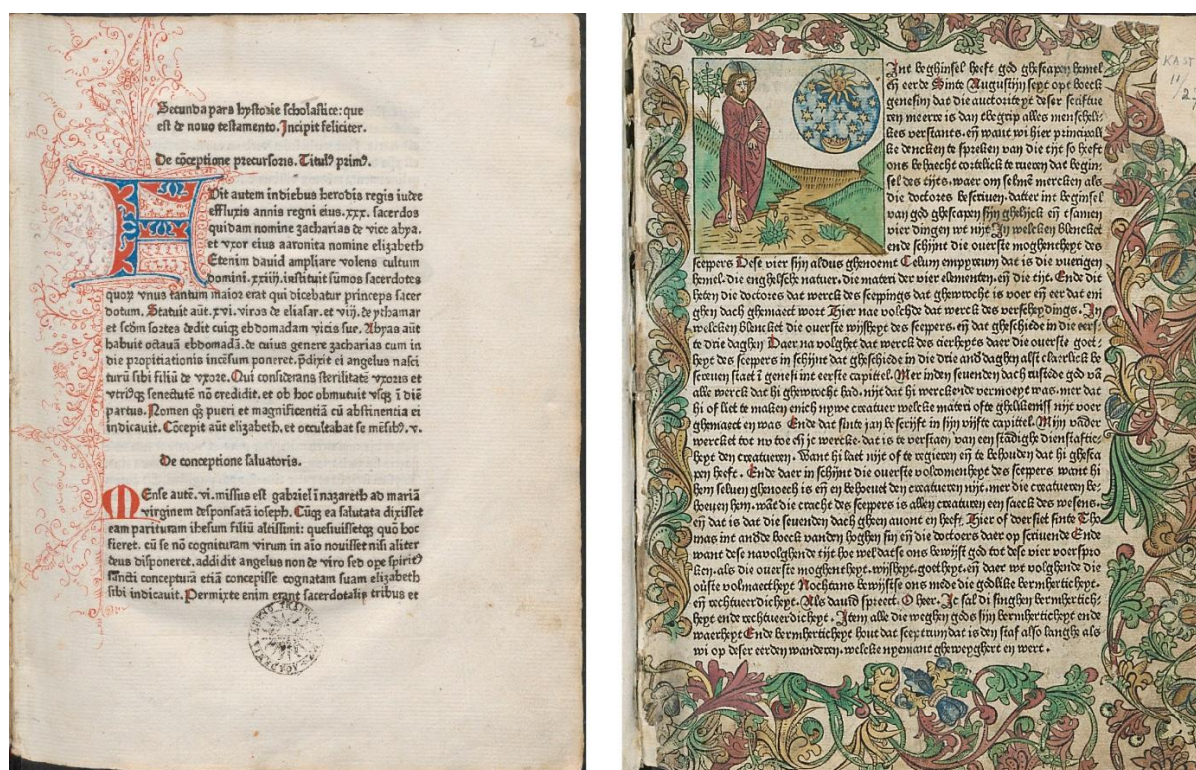 Secunda pars hystorie scholastice: que
est de nouo testamento. Incipit feliciter.
De cōceptione precursoris. Titulꝰ primꝰ.
FUit autem in diebus herodis regis iudee
effluxis annis regni eius .xxx. sacerdos
quidam nomine zacharias de vice abya.
et vxor eius aaronita nomine elizabeth
Etenim dauid ampliare volens cultum
domini .xxiiij. instituit sūmos sacerdotes
quoꝝ vnus tantum maior erat qui dicebatur princeps sacer
dotum. Statuit aūt .xvi. viros de eliasar. et viij. de ythamar
et scōm sortes dedit cuiqꝫ ebdomadam vicis sue. Abyas aūt
habuit octauā ebdomadā. de cuius genere zacharias cum in
die propitiationis incēsum poneret. p̄dixit ei angelus nasci
turū sibi filiū de vxore. Qui considerans sterilitatē vxoris et
vtriꝰqꝫ senectutē nō credidit. et ob hoc obmutuit vsqꝫ ī diē
partus. Nomen qꝫ pueri et magnificentiā cū abstinentia ei
indicauit. Cōcepit aūt elizabeth. et occultabat se mēsibꝰ .v.
De conceptione saluatoris.
MEnse autē .vi. missus est gabriel ī nazareth ad mariā
virginem desponsatā ioseph. Cūqꝫ ea salutata dixisset
eam parituram ihesum filiū altissimi: quesiuissetqꝫ quō hoc
fieret. cū se nō cognituram virum in aīo nouisset nisi aliter
deus disponeret. addidit angelus non de viro sed ope spiritꝰ
sancti concepturā etiā concepisse cognatam suam elizabeth
sibi indicauit. Permixte enim erant sacerdotalis tribus et
KAST
11/
2
Int beghinsel heeft god ghescapen hemel
eñ eerde Sinte Augustijn sept opt boeck
genesim dat die auctoriteyt deser scriftue
ren meerre is dan tbegrip alles menscheli-
kes verstants. eñ want wi hier principali
ke dencken te spreken van die tijt so heeft
ons behaecht cortelick te rueren dat begin-
sel des tijts. waer om selmē mercken als
die doctores bescriuen. datter int beginsel
van god ghescapen sijn ghelijck eñ tsamen
vier dingen wt nijt In welcken blencket
ende schijnt die ouerste moghentheyt des
sceppers Dese vier sijn aldus ghenoemt Celum empyreum dat is die vuerigen
hemel. die enghelsche natuer. die materi der vier elementen. eñ die tijt. Ende dit
heten die doctores dat werck des sceppings dat ghewrocht is voer eñ eer dat eni
ghen dach ghemaect wort Hier nae volchde dat werck des verscheydings. In
welcken blencket die ouerste wijsheyt des sceppers. eñ dat gheschiede in die eers-
te drie daghen Daer na volghet dat werck des cierheyts daer die ouerste goet-
heyt des sceppers in schijnt dat gheschiede in die drie and daghen alst claerlick be
screuen staet ī genesi int eerste capittel. Mer inden seuenden dach rustede god vā
alle werck dat hi ghewrocht had. nijet dat hi werckende vermoeyt was. mer dat
hi of liet te maken enich nywe creatuer welcke materi ofte ghelikeniss nijet voer
ghemaect en was Ende dat sinte jan bescrijft in sijn vijfte capittel. Mijn vader
wercket tot nv toe eñ ic wercke. dat is te verstaen van een stadighe dienstaftic-
heyt den creatueren. Want hi laet nijet of te regieren eñ te behouden dat hi ghesca
pen heeft. Ende daer in schijnt die ouerste volcomenheyt des sceppers want hi
hem seluen ghenoech is eñ en behoeuet den creatueren nijt. mer die creatueren be-
hoeuen hem. wāt die cracht des sceppers is allen creatueren een saeck des wesens.
eñ dat is dat die seuenden dach gheen auont en heeft. Hier of doer siet sinte Tho
mas int andde boeck vanden hoghen sin eñ die doctoers daer op scriuende Ende
want dese navolghende tijt hoe wel datse ons bewijst god tot dese vier voerspro
ken. als die ouerste moghentheyt. wijsheyt. goetheyt. eñ daer wt volghende die
ouste volmaectheyt Nochtans bewijstse ons mede die godlike bermherticheyt.
eñ rechtuerdicheyt. Als dauid spreect. O heer. Ic sal di singhen bermhertich-
heyt ende rechtuerdicheyt. Item alle die weghen gods sijn bermherticheyt ende
waerheyt Ende bermherticheyt hout dat sceptrum dat is den staf also langhe als
wi op deser eerden wanderen. welcke nyemant gheweyghert en wert.